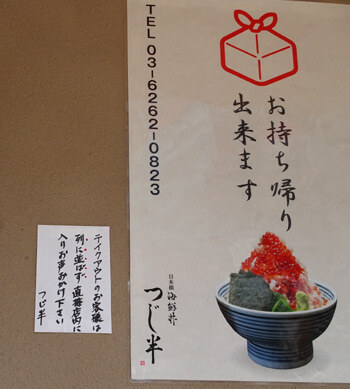 TEL 03-6262-0823
お持ち帰り
出来ます
日本橋 海鮮丼
つじ半
テイクアウトのお客様は
列に並ばず直接店内に
入りお声がけ下さい
つじ半